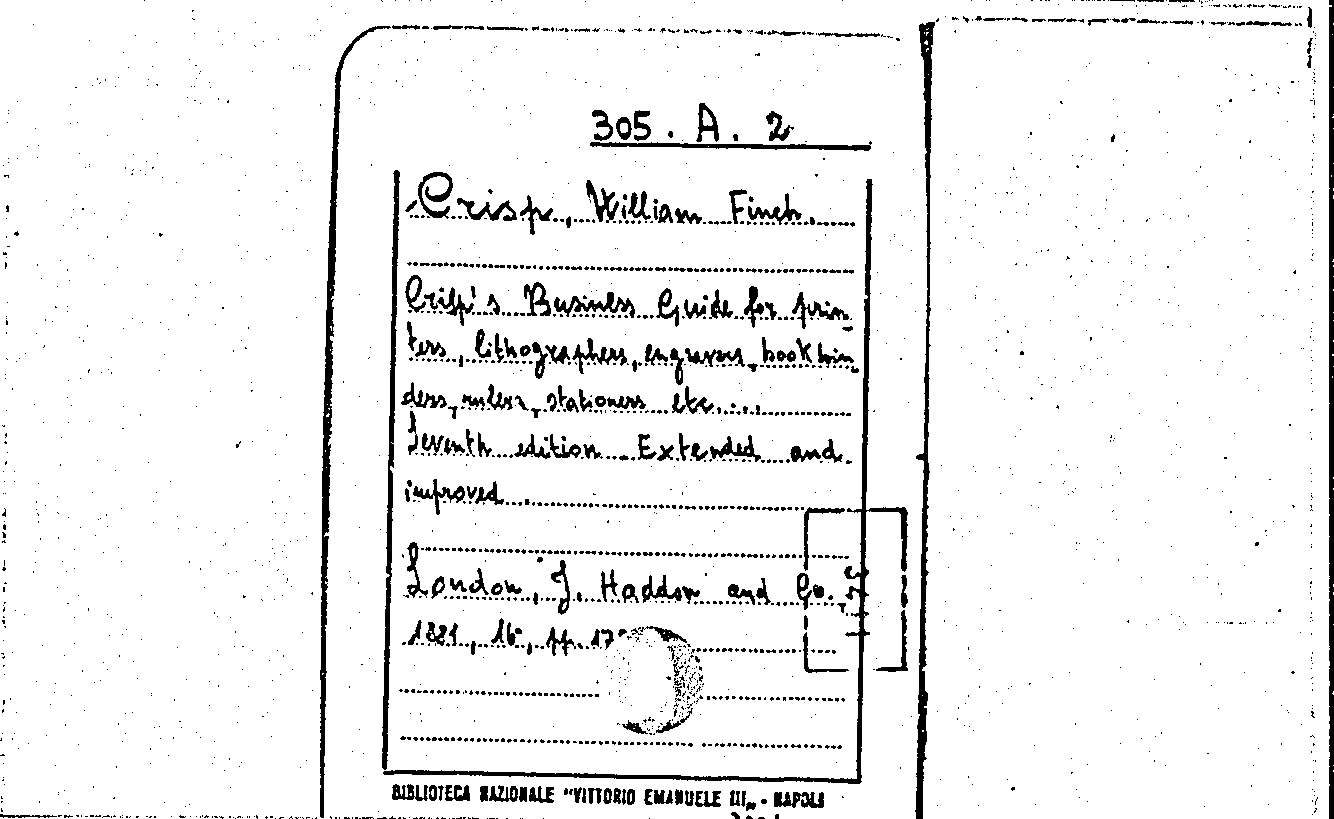 305. A. 2
Crisp, William Finch.
Crisp's Business Guide for prin-
ters, lithographers, engravers, bookbin-
ders, rulers, stationers etc....
Seventh edition. Extended and
improved.
London, J. Haddon and Co.
1881, 16°, pp. 17
BIBLIOTECA NAZIONALE "VITTORIO EMANUELE III„ - NAPOLI